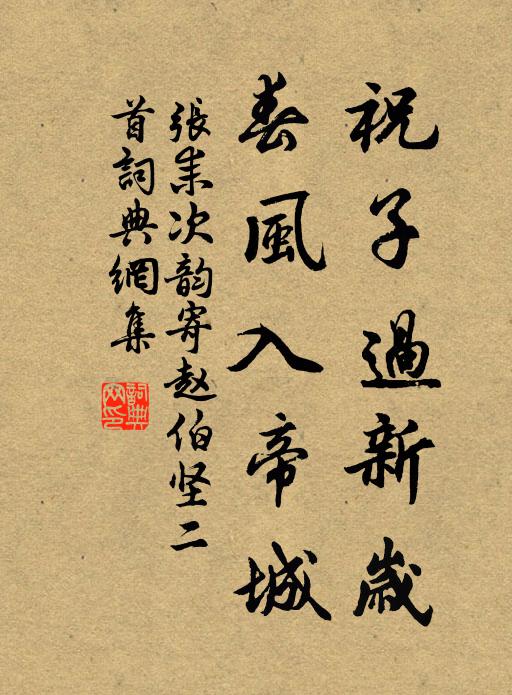 祝子過新歲
春風入帝城
張耒次韵寄赵伯坚二
首詞典網集
詞典網印